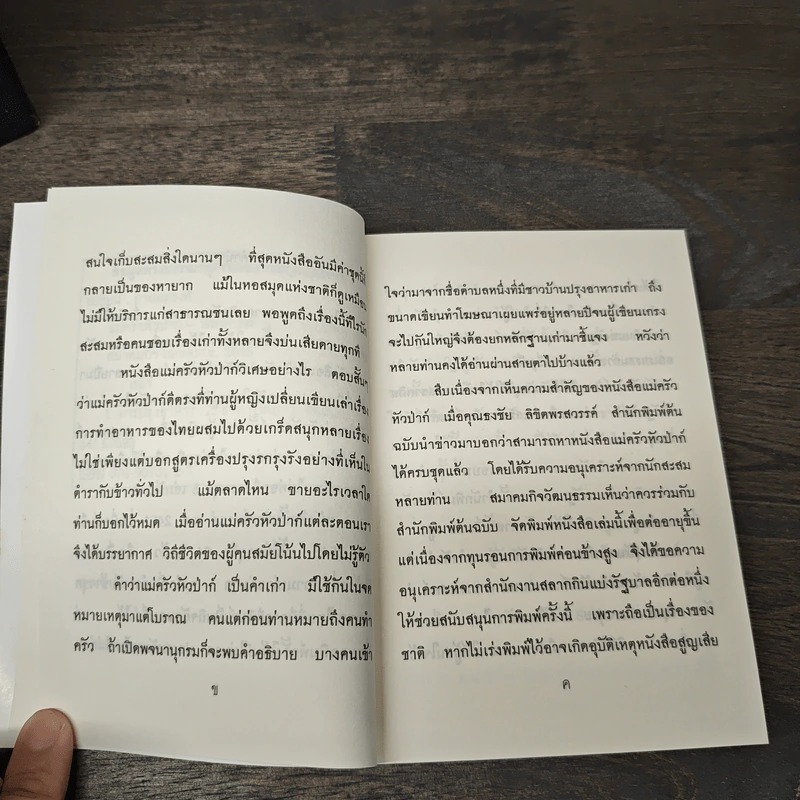 สนใจเก็บสะสมสิ่งใดนานๆ ที่สุดหนังสืออันมีค่าชุดนี้ก็
กลายเป็นของหายาก แม้ในหอสมุดแห่งชาติก็ดูเหมือน
ไม่มีให้บริการแก่สาธารณชนเลย พอพูดถึงเรื่องนี้ทีไรนัก
สะสมหรือคนชอบเรื่องเก่าทั้งหลายจึงบ่นเสียดายทุกที
หนังสือแม่ครัวหัวป่าก์วิเศษอย่างไร ตอบสั้นๆ
ว่าแม่ครัวหัวป่าก์ดีตรงที่ท่านผู้หญิงเปลี่ยนเขียนเล่าเรื่อง
การทำอาหารของไทยผสมไปด้วยเกร็ดสนุกหลายเรื่อง
ไม่ใช่เพียงแต่บอกสูตรเครื่องปรุงรกรุงรังอย่างที่เห็นใน
ตำรากับข้าวทั่วไป แม้ตลาดไหน ขายอะไรเวลาใด
ท่านก็บอกไว้หมด เมื่ออ่านแม่ครัวหัวป่าก์แต่ละตอนเรา
จึงได้บรรยากาศ วิถีชีวิตของผู้คนสมัยโน้นไปโดยไม่รู้ตัว
คำว่าแม่ครัวหัวป่าก์ เป็นคำเก่า มีใช้กันในจด
หมายเหตุมาแต่โบราณ คนแต่ก่อนท่านหมายถึงคนทำ
ครัว ถ้าเปิดพจนานุกรมก็จะพบคำอธิบาย บางคนเข้า
ข
ใจว่ามาจากชื่อตำบลหนึ่งที่มีชาวบ้านปรุงอาหารเก่า ถึง
ขนาดเขียนทำโฆษณาเผยแพร่อยู่หลายปีจนผู้เขียนเกรง
จะไปกันใหญ่จึงต้องยกหลักฐานเก่ามาชี้แจง หวังว่า
หลายท่านคงได้อ่านผ่านสายตาไปบ้างแล้ว
สืบเนื่องจากเห็นความสำคัญของหนังสือแม่ครัว
หัวป่าก์ เมื่อคุณธงชัย ลิขิตพรสวรรค์ สำนักพิมพ์ต้น
ฉบับนำข่าวมาบอกว่าสามารถหาหนังสือแม่ครัวหัวป่าก์
ได้ครบชุดแล้ว โดยได้รับความอนุเคราะห์จากนักสะสม
หลายท่าน สมาคมกิจวัฒนธรรมเห็นว่าควรร่วมกับ
สำนักพิมพ์ต้นฉบับ จัดพิมพ์หนังสือเล่มนี้เพื่อต่ออายุขึ้น
แต่เนื่องจากทุนรอนการพิมพ์ค่อนข้างสูง จึงได้ขอความ
อนุเคราะห์จากสำนักงานสลากกินแบ่งรัฐบาลอีกต่อหนึ่ง
ให้ช่วยสนับสนุนการพิมพ์ครั้งนี้ เพราะถือเป็นเรื่องของ
ชาติ หากไม่เร่งพิมพ์ไว้อาจเกิดอุบัติเหตุหนังสือสูญเสีย
ค